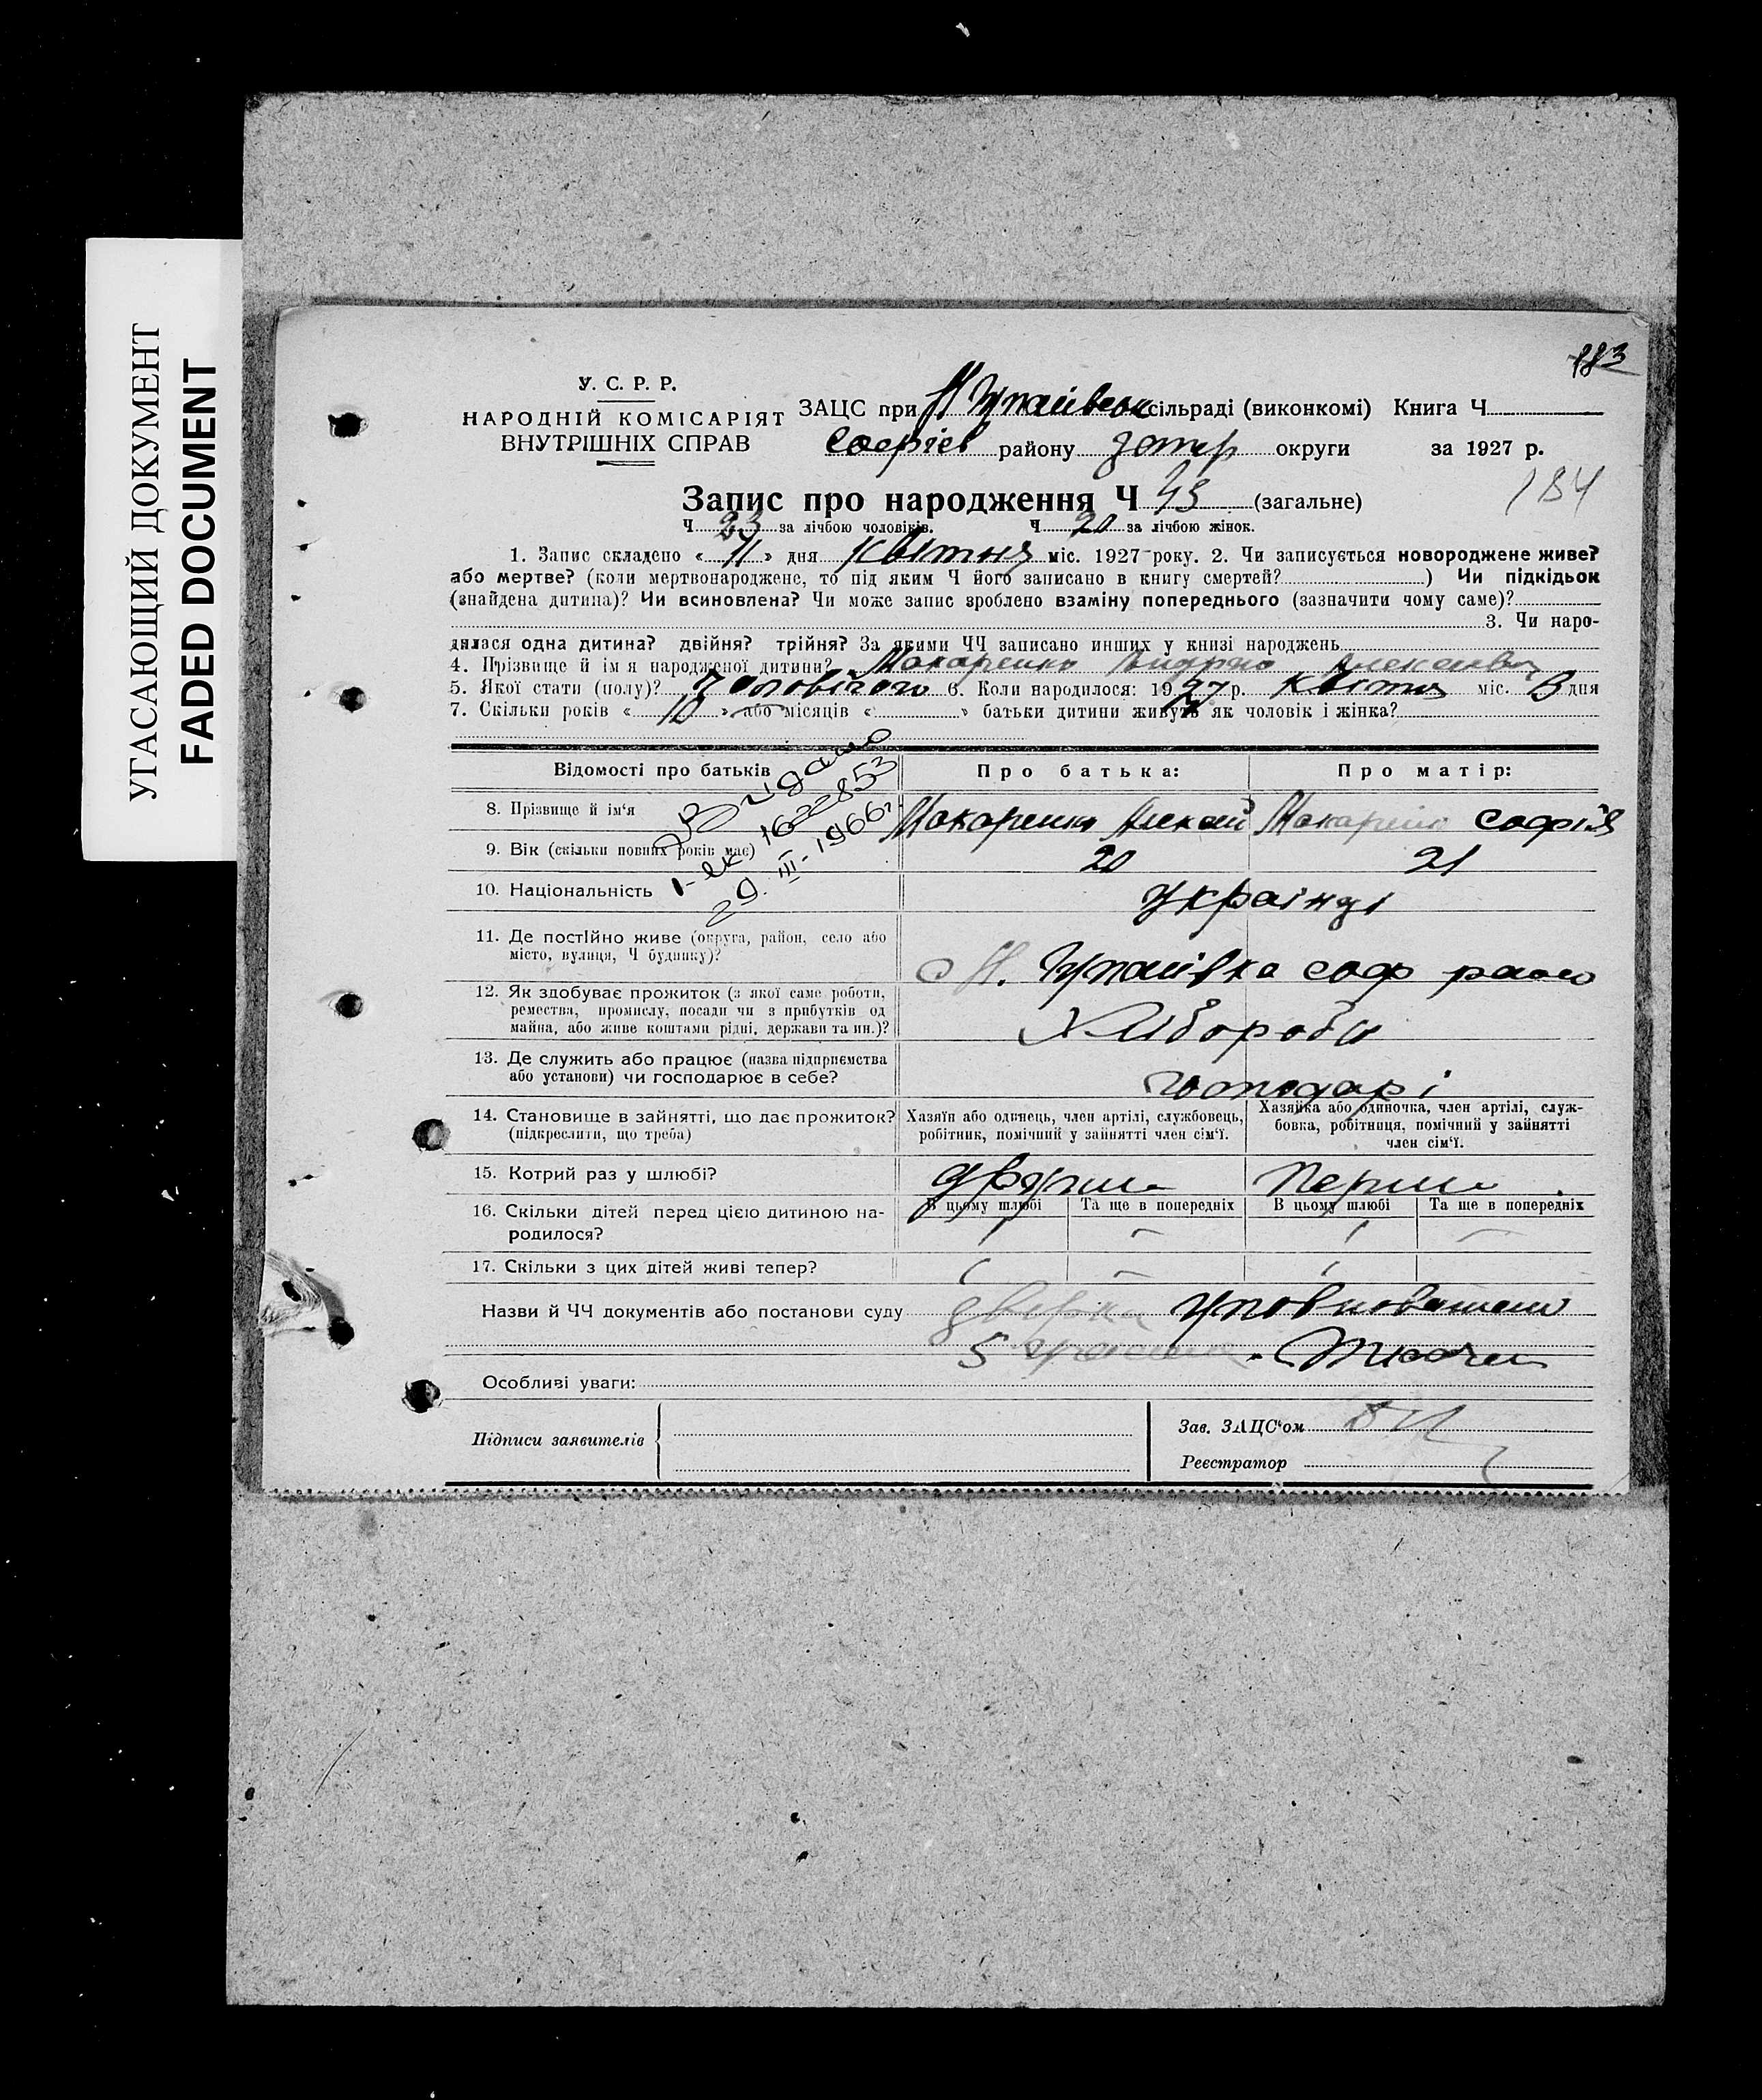 УГАСАЮЩИЙ ДОКУМЕНТ
FADED DOCUMENT
183
У. С. Р. Р.
НАРОДНІЙ КОМІСАРІЯТ
ВНУТРІШНІХ СПРАВ
ЗАЦС при сільраді (виконкомі) Книга Ч
Софіев району округи за 1927 р.
184
Запис про народження Ч 43 (загальне)
Ч 23 за лічбою чоловіків. Ч 20 за лічбою жінок.
1. Запис складено « 11 » дня Квітня міс. 1927 року. 2. Чи записується новороджене живе?
або мертве? (коли мертвонароджене, то під яким Ч його записано в книгу смертей? ) Чи підкідьок
(знайдена дитина)? Чи всиновлена? Чи може запис зроблено взаміну попереднього (зазначити чому саме)?
3. Чи наро-
дилася одна дитина? двійня? трійня? За якими ЧЧ записано инших у книзі народжень
4. Прізвище й ім'я народженої дитини? Макаренко
5. Якої стати (полу)? Чоловічого 6. Коли народилося: 1927 р. Квітня міс. 3 дня
7. Скільки років « 10 » або місяців « » батьки дитини живуть як чоловік і жінка?
Відомості про батьків
Про батька:
Про матір:
Видано
1-ек 1622853
29. III-1966г
8. Прізвище й ім'я Макаренко Алексій Макаренко Софія
9. Вік (скільки повних років має) 20 21
10. Національність Українці
11. Де постійно живе (округа, район, село або
місто, вулиця, Ч будинку)?
соф
12. Як здобуває прожиток (з якої саме роботи,
ремества, промислу, посади чи з прибутків од
майна, або живе коштами рідні, держави та ин.)?
Хлібороби
13. Де служить або працює (назва підприємства
або установи) чи господарює в себе?
господарі
14. Становище в зайнятті, що дає прожиток?
(підкреслити, що треба)
Хазяїн або одинець, член артілі, службовець,
робітник, помічний у зайнятті член сім'ї.
Хазяйка або одиночка, член артілі, служ-
бовка, робітниця, помічний у зайнятті
член сім'ї.
15. Котрий раз у шлюбі? Перши
16. Скільки дітей перед цією дитиною на-
родилося?
В цьому шлюбі Та ще в попередніх В цьому шлюбі Та ще в попередніх
1 – 1 –
17. Скільки з цих дітей живі тепер?
1 – 1
Назви й ЧЧ документів або постанови суду
5
Особливі уваги:
Підписи заявителів
Зав. ЗАЦС'ом
Реєстратор